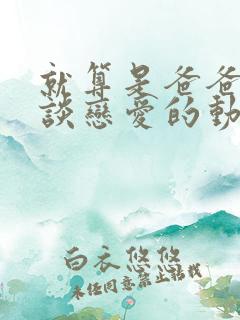 就算是爸爸
談戀愛的動
白衣悠悠
未经同意禁止转载